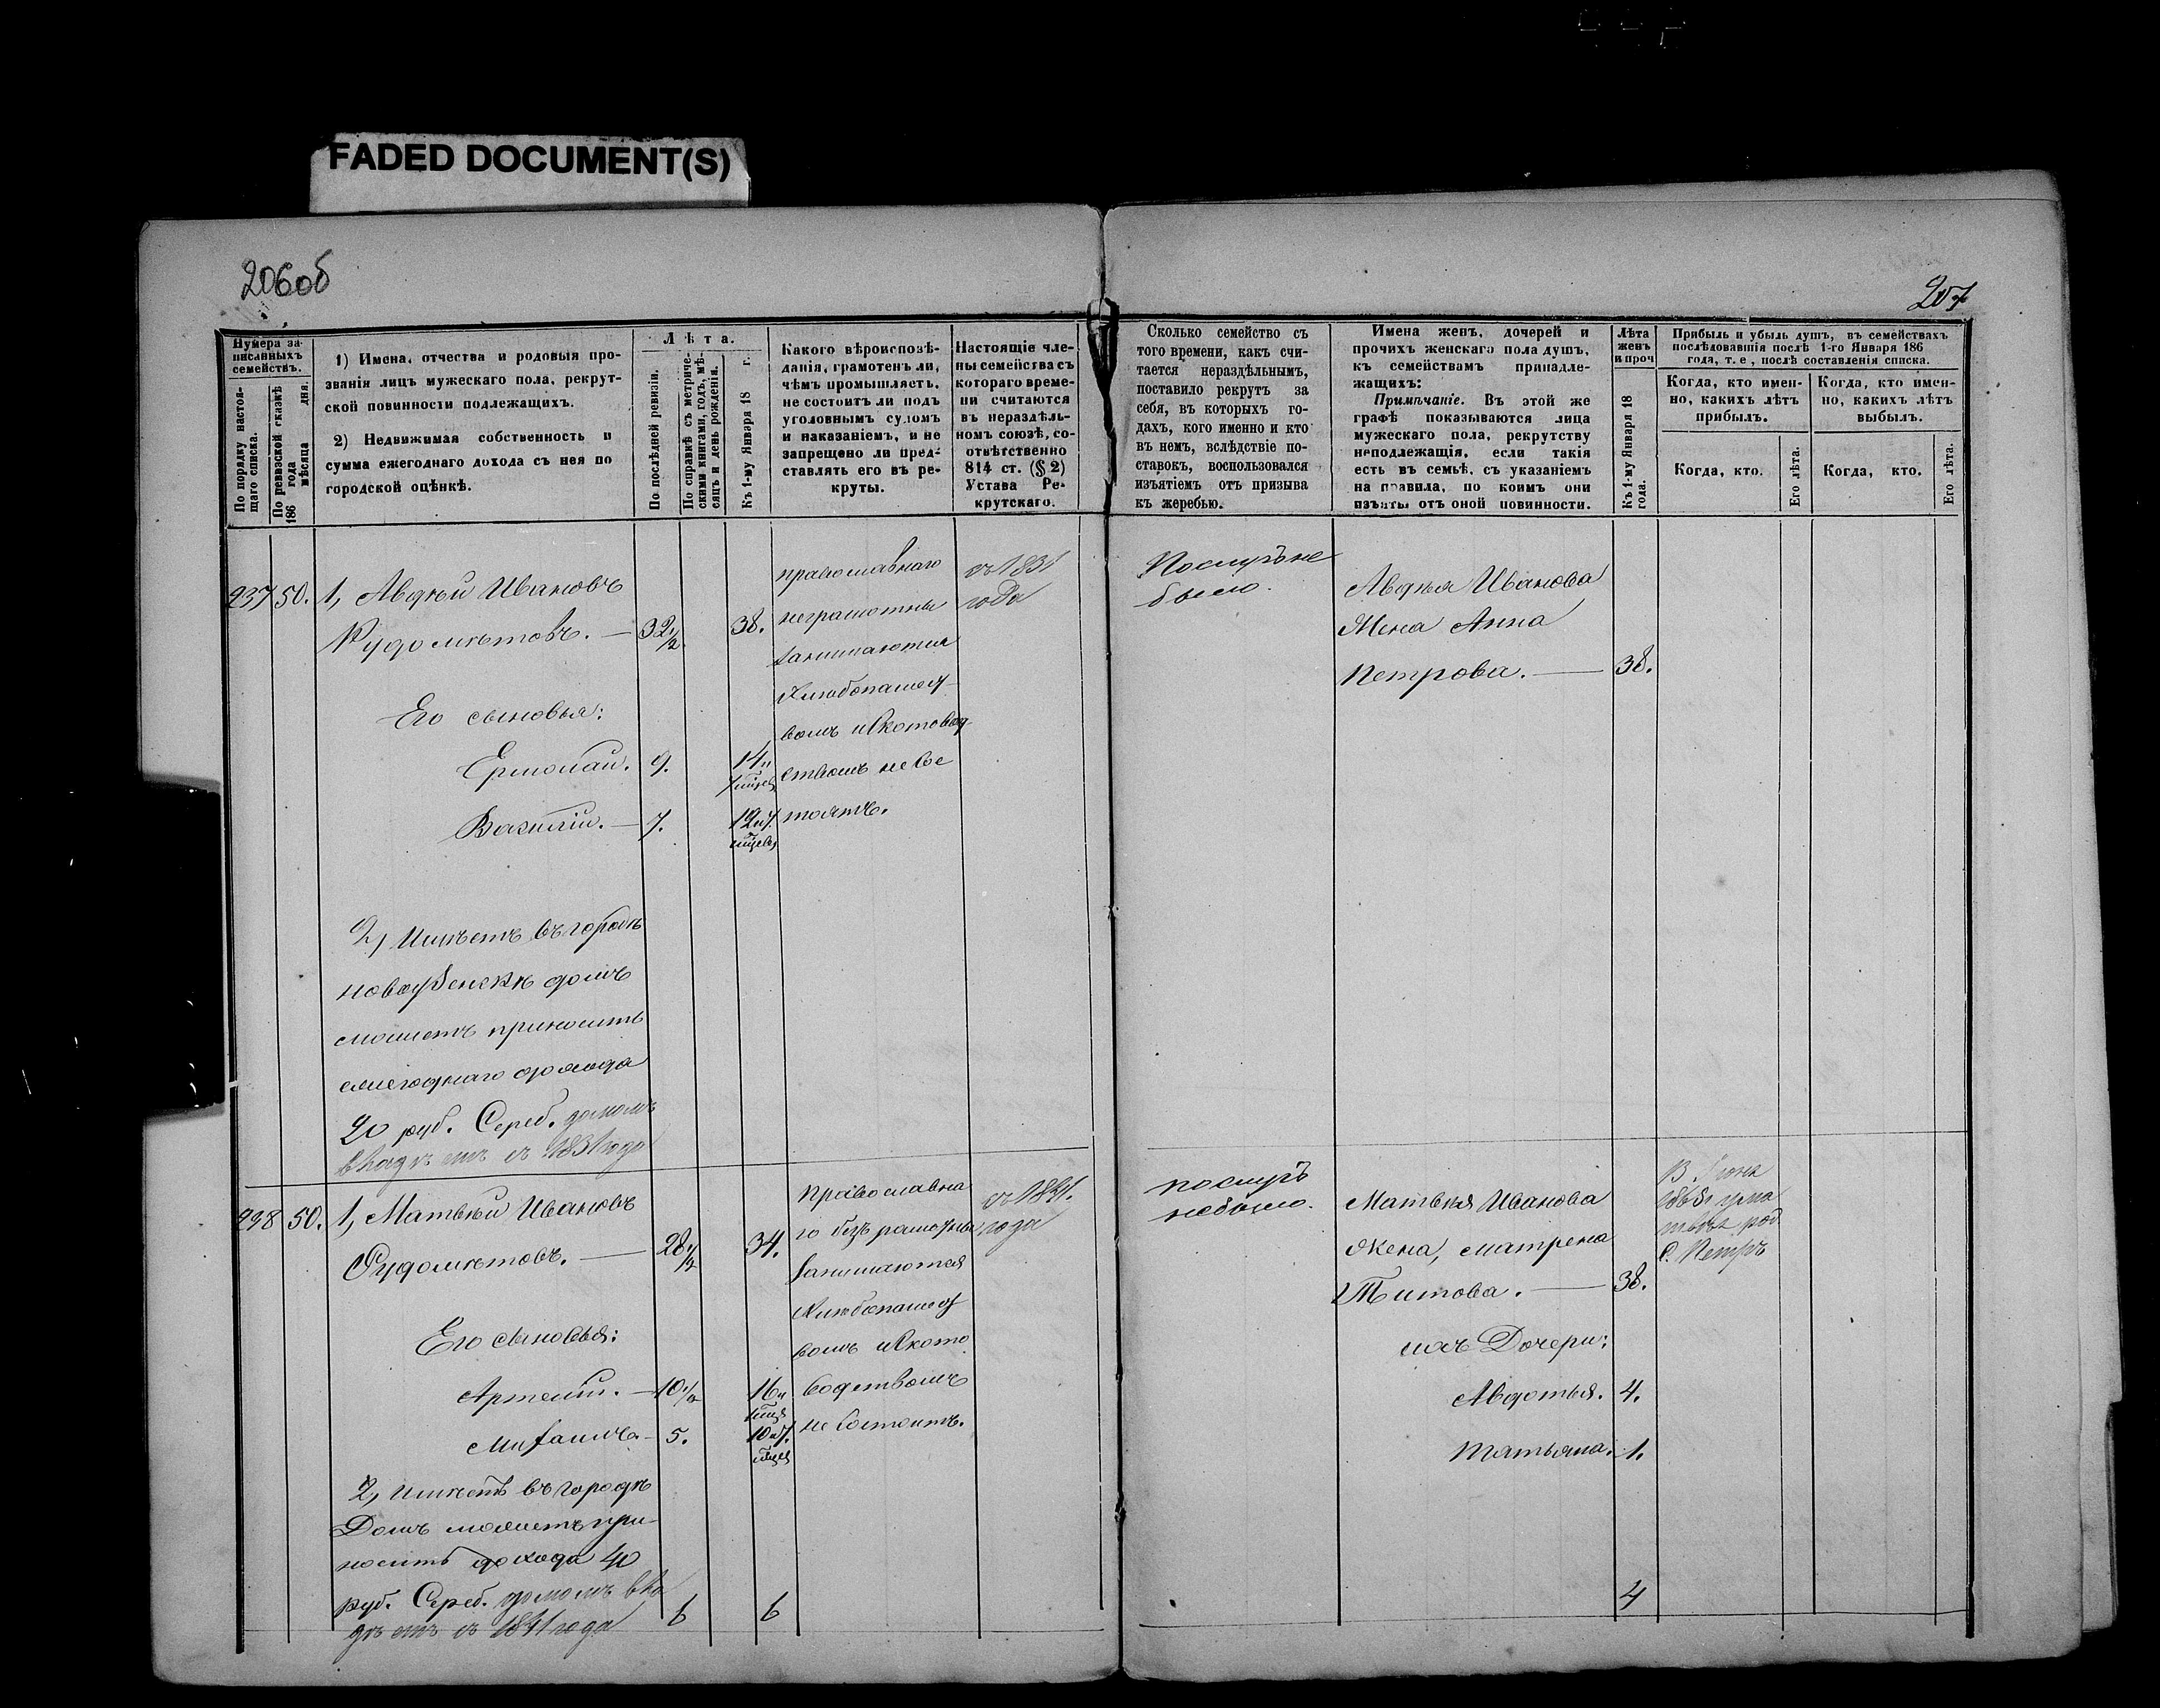 FADED DOCUMENT(S)
206об
207
Нумера за-
писанныхъ
семействъ.
По порядку настоя-
щаго списка.
По ревизской сказкѣ
186 года мѣсяца дня.
1) Имена, отчества и родовыя про-
званія лицъ мужескаго пола, рекрут-
ской повинности подлежащихъ.
2) Недвижимая собственность и
сумма ежегоднаго дохода съ нея по
городской оцѣнкѣ.
Лѣта.
По послѣдней ревизіи.
По справкѣ съ метриче-
скими книгами, годъ, мѣ-
сяцъ и день рожденія.
Къ 1-му Января 18 г.
Какого вѣроисповѣ-
данія, грамотенъ ли,
чѣмъ промышляетъ,
не состоитъ ли подъ
уголовнымъ судомъ
и наказаніемъ, и не
запрещено ли пред-
ставлять его въ ре-
круты.
Настоящіе чле-
ны семейства съ
котораго време-
ни считаются
въ нераздѣль-
номъ союзѣ, со-
отвѣтственно
814 ст. (§ 2)
Устава Ре-
крутскаго.
Сколько семейство съ
того времени, какъ счи-
тается нераздѣльнымъ,
поставило рекрутъ за
себя, въ которыхъ го-
дахъ, кого именно и кто
въ немъ, вслѣдствіе по-
ставокъ, воспользовался
изъятіемъ отъ призыва
къ жеребью.
Имена женъ, дочерей и
прочихъ женскаго пола душъ,
къ семействамъ принадле-
жащихъ:
Примѣчаніе. Въ этой же
графѣ показываются лица
мужескаго пола, рекрутству
неподлежащія, если такія
есть въ семьѣ, съ указаніемъ
на правила, по коимъ они
изъяты отъ оной повинности.
Лѣта
женъ
и проч
Къ 1-му Января 18
года.
Прибыль и убыль душъ, въ семействахъ
послѣдовавшія послѣ 1-го Января 186
года, т. е., послѣ составленія списка.
Когда, кто имен-
но, какихъ лѣтъ
прибылъ.
Когда, кто.
Его лѣта.
Когда, кто имен-
но, какихъ лѣтъ
выбылъ.
Когда, кто.
Его лѣта.
237 50. 1, Авдѣй Ивановъ
Рудомѣтовъ. — 32½ 38.
Его сыновья:
Ермолай. 9. 14 и
7 мѣсяц
Василій. — 7. 12 и 7
мѣсяц
2, Имѣетъ въ городѣ
новоузенскѣ домъ
можетъ приносить
ежегоднаго дохода
20 руб. Сереб. домомъ
владѣетъ съ 1831 года
православнаго
неграмотны
занимаются
Хлебопашест-
вомъ и Скотовод-
ствомъ не сос
тоятъ.
съ 1831
года
Послугъ не
было.
Авдѣя Иванова
Жена Анна
Петрова. — 38.
238 50. 1, Матвѣй Ивановъ
Рудомѣтовъ. — 28½ 34.
Его сыновья:
Артемій. — 10½ 16 и
Михаилъ. — 5. 10 и 7
мѣсяц
2, имѣетъ въ городѣ
Домъ можетъ при-
носить дохода 40
руб. Сереб. домомъ вла
дѣетъ съ 1841 года
6 6
православна
го
занимаются
Хлебопашест
вомъ и Ското
водствомъ
не Состоитъ.
года
послугъ
небыло.
Матвѣя Иванова
Жена, матрена
Титова. — 38.
ихъ Дочери:
Авдотья. 4.
Татьяна. 1.
4
Петръ